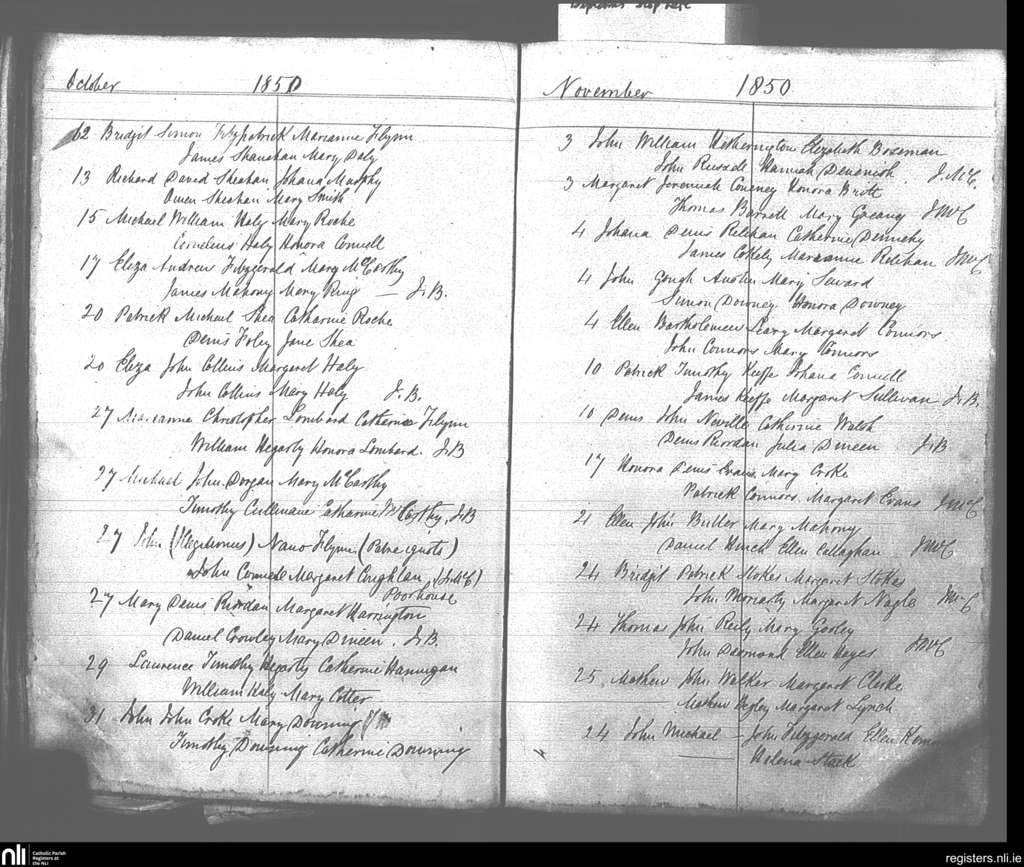 October 1850
12 Bridgit Simon Fitzpatrick Marianne Flynn
James Shanahan Mary Daly
13 Richard David Sheahan Johana Murphy
Owen Sheahan Mary Smith
15 Michael William Haly Mary Roche
Cornelius Haly Honora Connell
17 Eliza Andrew Fitzgerald Mary McCarthy
James Mahony Mary Ring — J.B.
20 Patrick Michael Shea Catharine Roche
Denis Foley Jane Shea
20 Eliza John Collins Margaret Haly
John Collins Mary Haly J.B.
27 Marianne Christopher Lombard Catherine Flynn
William Hegarty Honora Lombard. J.B
27 Michael John Dorgan Mary McCarthy
Timothy Cullinane Catharine McCarthy. J.B
27 John (Illegitimus) Nano Flynn (Patre ignoto)
John Connell Margaret Coughlan (J.McC)
Poorhouse
27 Mary Denis Riordan Margaret Harrington
Daniel Crowley Mary Dineen. J.B.
29 Laurence Timothy Hegarty Catherine Hannigan
William Haly Mary Cotter
31 John John Croke Mary Downing
Timothy Downing Catherine Downing
November 1850
3 John William Hetherington Elizabeth Boseman
John Russell Hannah J.McC.
3 Margaret Jeremiah Honora Britt
Thomas Barrett Mary Greany JMcC
4 Johana Denis Relihan Catherine Dennehy
James Marianne Relihan JMcC
4 John Gough Mary Seward
Simon Downey Honora Downey
4 Ellen Bartholemew Leary Margaret Connors
John Connors Mary Connors
10 Patrick Timothy Keeffe Johana Connell
James Keeffe Margaret Sullivan J.B.
10 Denis John Neville Catherine Walsh
Denis Riordan Julia Dineen J.B
17 Honora Denis Evans Mary Croke
Patrick Connors Margaret Evans JMcC
21 Ellen John Butler Mary Mahony
Daniel Ellen Callaghan JMcC
24 Bridgit Patrick Stokes Margaret Stokes
John Moriarty Margaret Nagle JMcC
24 Thomas John Reily Mary Gorley
John Desmond Ellen Hayes JMcC
25 Mathew John Walker Margaret Clarke
Mathew Margaret Lynch
24 John Michael — John Fitzgerald Ellen
Helena Stack
nli
Catholic Parish
Registers at
the NLI
registers.nli.ie